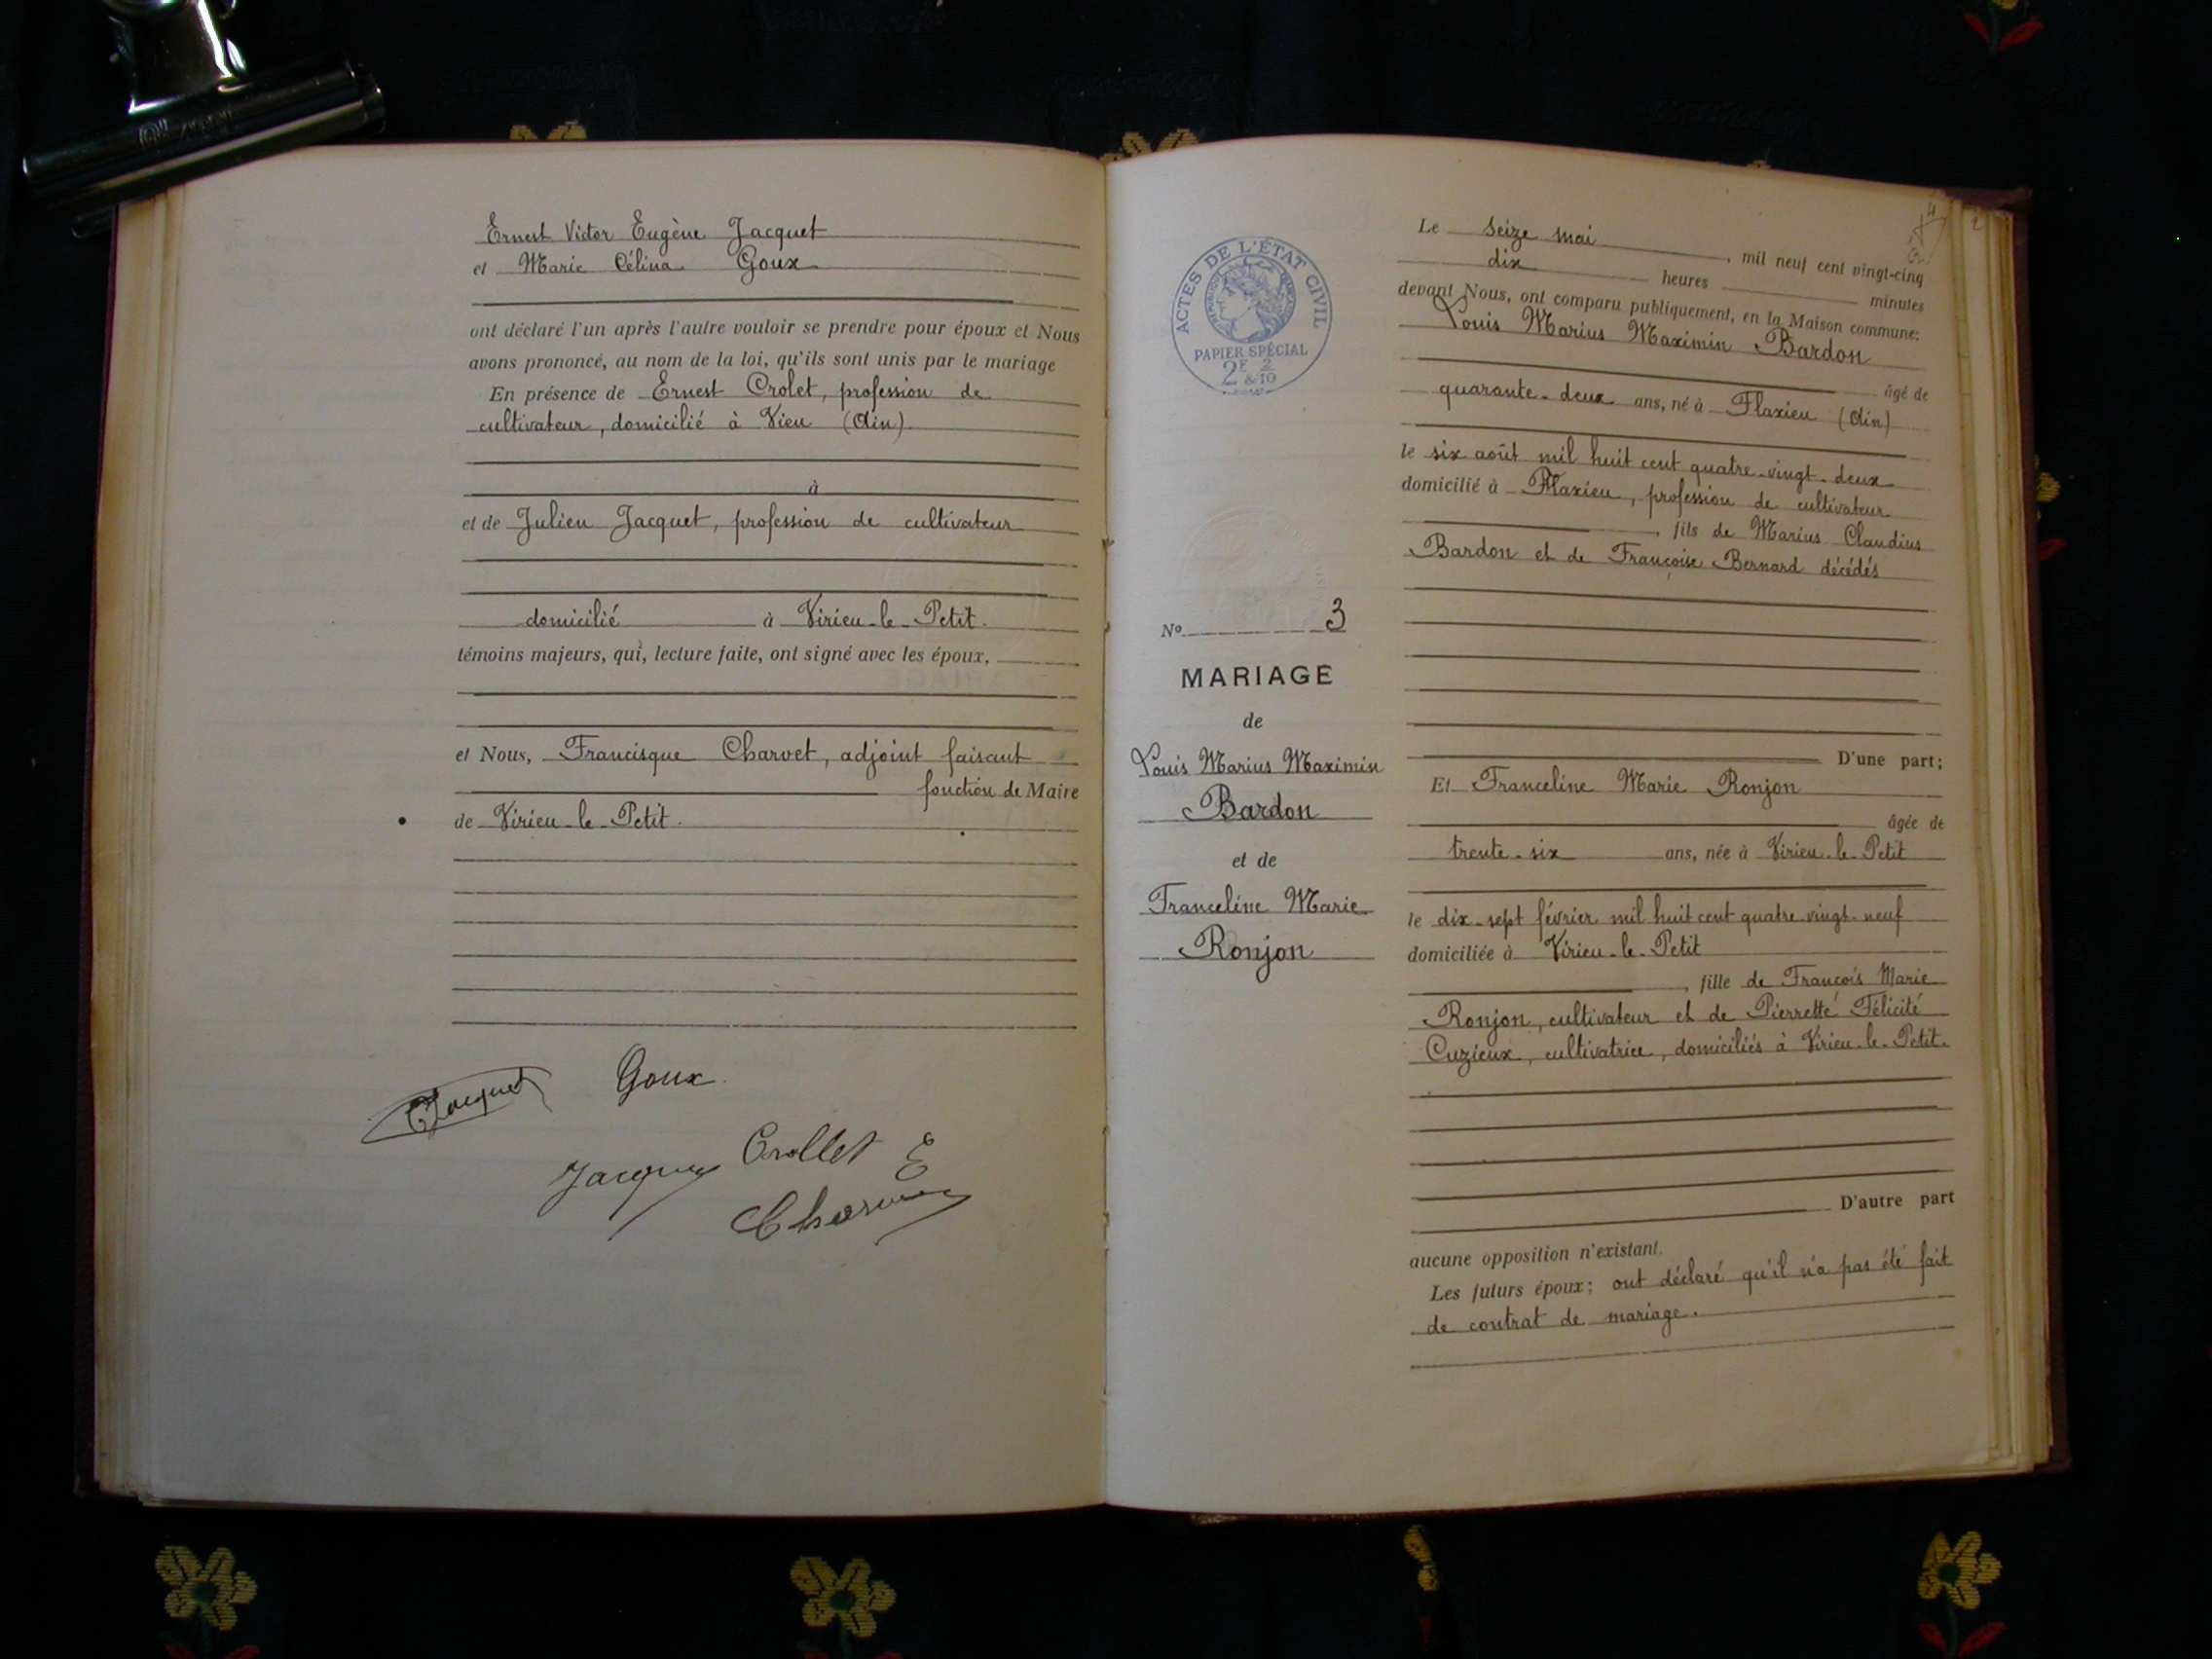 Ernest Victor Eugène Jacquet
et Marie Célina Goux
ont déclaré l'un après l'autre vouloir se prendre pour époux et Nous
avons prononcé, au nom de la loi, qu'ils sont unis par le mariage
En présence de Ernest Crolet, profession de
cultivateur, domicilié à Vieu (Ain)
à
et de Julien Jacquet, profession de cultivateur
domicilié à Virieu-le-Petit.
témoins majeurs, qui, lecture faite, ont signé avec les époux,
et Nous, Francisque Charvet, adjoint faisant
fonction de Maire
de Virieu-le-Petit.
Jacquet Goux
Crollet E
ACTES DE L'ÉTAT CIVIL
PAPIER SPÉCIAL
2E 2
& 10
No 3
MARIAGE
de
Louis Marius Maximin
Bardon
et de
Franceline Marie
Ronjon
Le seize mai, mil neuf cent vingt-cinq
dix heures minutes
devant Nous, ont comparu publiquement, en la Maison commune:
Louis Marius Maximin Bardon
âgé de
quarante-deux ans, né à Flaxieu (Ain)
le six août mil huit cent quatre-vingt-deux
domicilié à Flaxieu, profession de cultivateur
, fils de Marius Claudius
Bardon et de Françoise Bernard décédés
D'une part;
Et Franceline Marie Ronjon
âgée de
trente-six ans, née à Virieu-le-Petit
le dix-sept février mil huit cent quatre-vingt-neuf
domiciliée à Virieu-le-Petit
, fille de François Marie
Ronjon, cultivateur et de Pierrette Félicité
Cuzieux, cultivatrice, domiciliés à Virieu-le-Petit.
D'autre part
aucune opposition n'existant.
Les futurs époux; ont déclaré qu'il n'a pas été fait
de contrat de mariage.